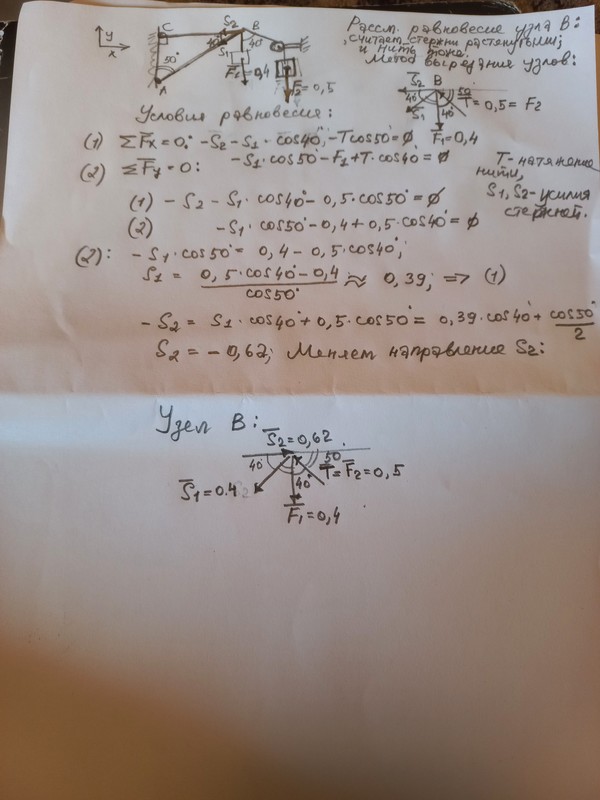 y
x
C
S2
B
40°
40°
S1
50°
F1=0,4
F2=0,5
A
Рассм. равновесие узла B:
считает стержни растянутыми;
и нить тоже.
Метод вырезания узлов:
S2 B 50
40° T=0,5=F2
S1 40°
F1=0,4
Условия равновесия:
(1) ΣFx=0: -S2-S1·cos40°-Tcos50°=0
(2) ΣFy=0: -S1·cos50°-F1+T·cos40°=0
T-натяжение
нити,
S1, S2-усилия
стержней.
(1) -S2-S1·cos40°-0,5·cos50°=0
(2) -S1·cos50°-0,4+0,5·cos40°=0
(2): -S1·cos50°=0,4-0,5·cos40°;
S1 = 0,5·cos40°-0,4 / cos50° ≈ 0,39; => (1)
-S2 = S1·cos40°+0,5·cos50°=0,39·cos40°+ cos50° / 2
S2=-0,62; Меняет направление S2:
Узел B:
S2=0,62
40° 50
S1=0.4 40° T=F2=0,5
F1=0,4